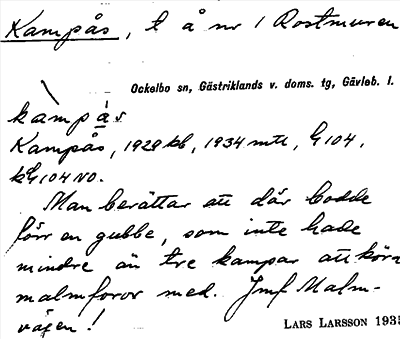 Kampås, t å nr 1 Rostmuren
Ockelbo sn, Gästriklands v. doms. tg, Gävleb. l.
kàmpås
Kampås, 1929 kb, 1934 mtl, G 104,
kG 104 NO.
Man berättar att där bodde
förr en gubbe, som inte hade
mindre än tre kampar att köra
malmforor med. Jmf Malm-
vägen!
LARS LARSSON 1935